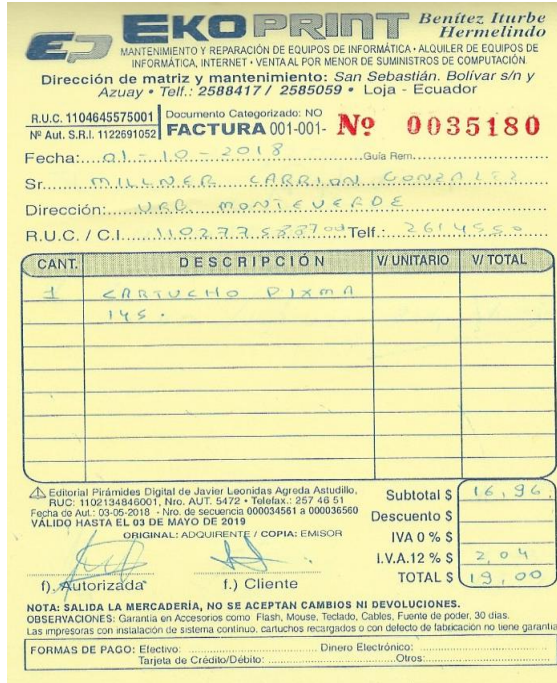 EKOPRINT Benítez Iturbe
Hermelindo
MANTENIMIENTO Y REPARACIÓN DE EQUIPOS DE INFORMÁTICA • ALQUILER DE EQUIPOS DE
INFORMÁTICA, INTERNET • VENTA AL POR MENOR DE SUMINISTROS DE COMPUTACIÓN.
Dirección de matriz y mantenimiento: San Sebastián. Bolívar s/n y
Azuay • Telf.: 2588417 / 2585059 • Loja - Ecuador
R.U.C. 1104645575001 Documento Categorizado: NO
Nº Aut. S.R.I. 1122691052 FACTURA 001-001- Nº 0035180
Fecha: 01-10-2018 Guía Rem.
Sr. MILLNER CARRION GONZALEZ
Dirección: URB. MONTEVERDE
R.U.C. / C.I. Telf.: 2614550
CANT. DESCRIPCIÓN V/ UNITARIO V/ TOTAL
1 CARTUCHO PIXMA
145.
Editorial Pirámides Digital de Javier Leonidas Agreda Astudillo,
RUC: 1102134846001, Nro. AUT. 5472 • Telefax.: 257 46 51
Fecha de Aut.: 03-05-2018 - Nro. de secuencia 000034561 a 000036560
VÁLIDO HASTA EL 03 DE MAYO DE 2019
ORIGINAL: ADQUIRENTE / COPIA: EMISOR
Subtotal $ 16,96
Descuento $
IVA 0 % $
I.V.A.12 % $ 2,04
TOTAL $ 19,00
f), Autorizada f.) Cliente
NOTA: SALIDA LA MERCADERÍA, NO SE ACEPTAN CAMBIOS NI DEVOLUCIONES.
OBSERVACIONES: Garantía en Accesorios como Flash, Mouse, Teclado, Cables, Fuente de poder, 30 días.
Las impresoras con instalación de sistema continuo, cartuchos recargados o con defecto de fabricación no tiene garantía
FORMAS DE PAGO: Efectivo: Dinero Electrónico:
Tarjeta de Crédito/Débito: Otros: